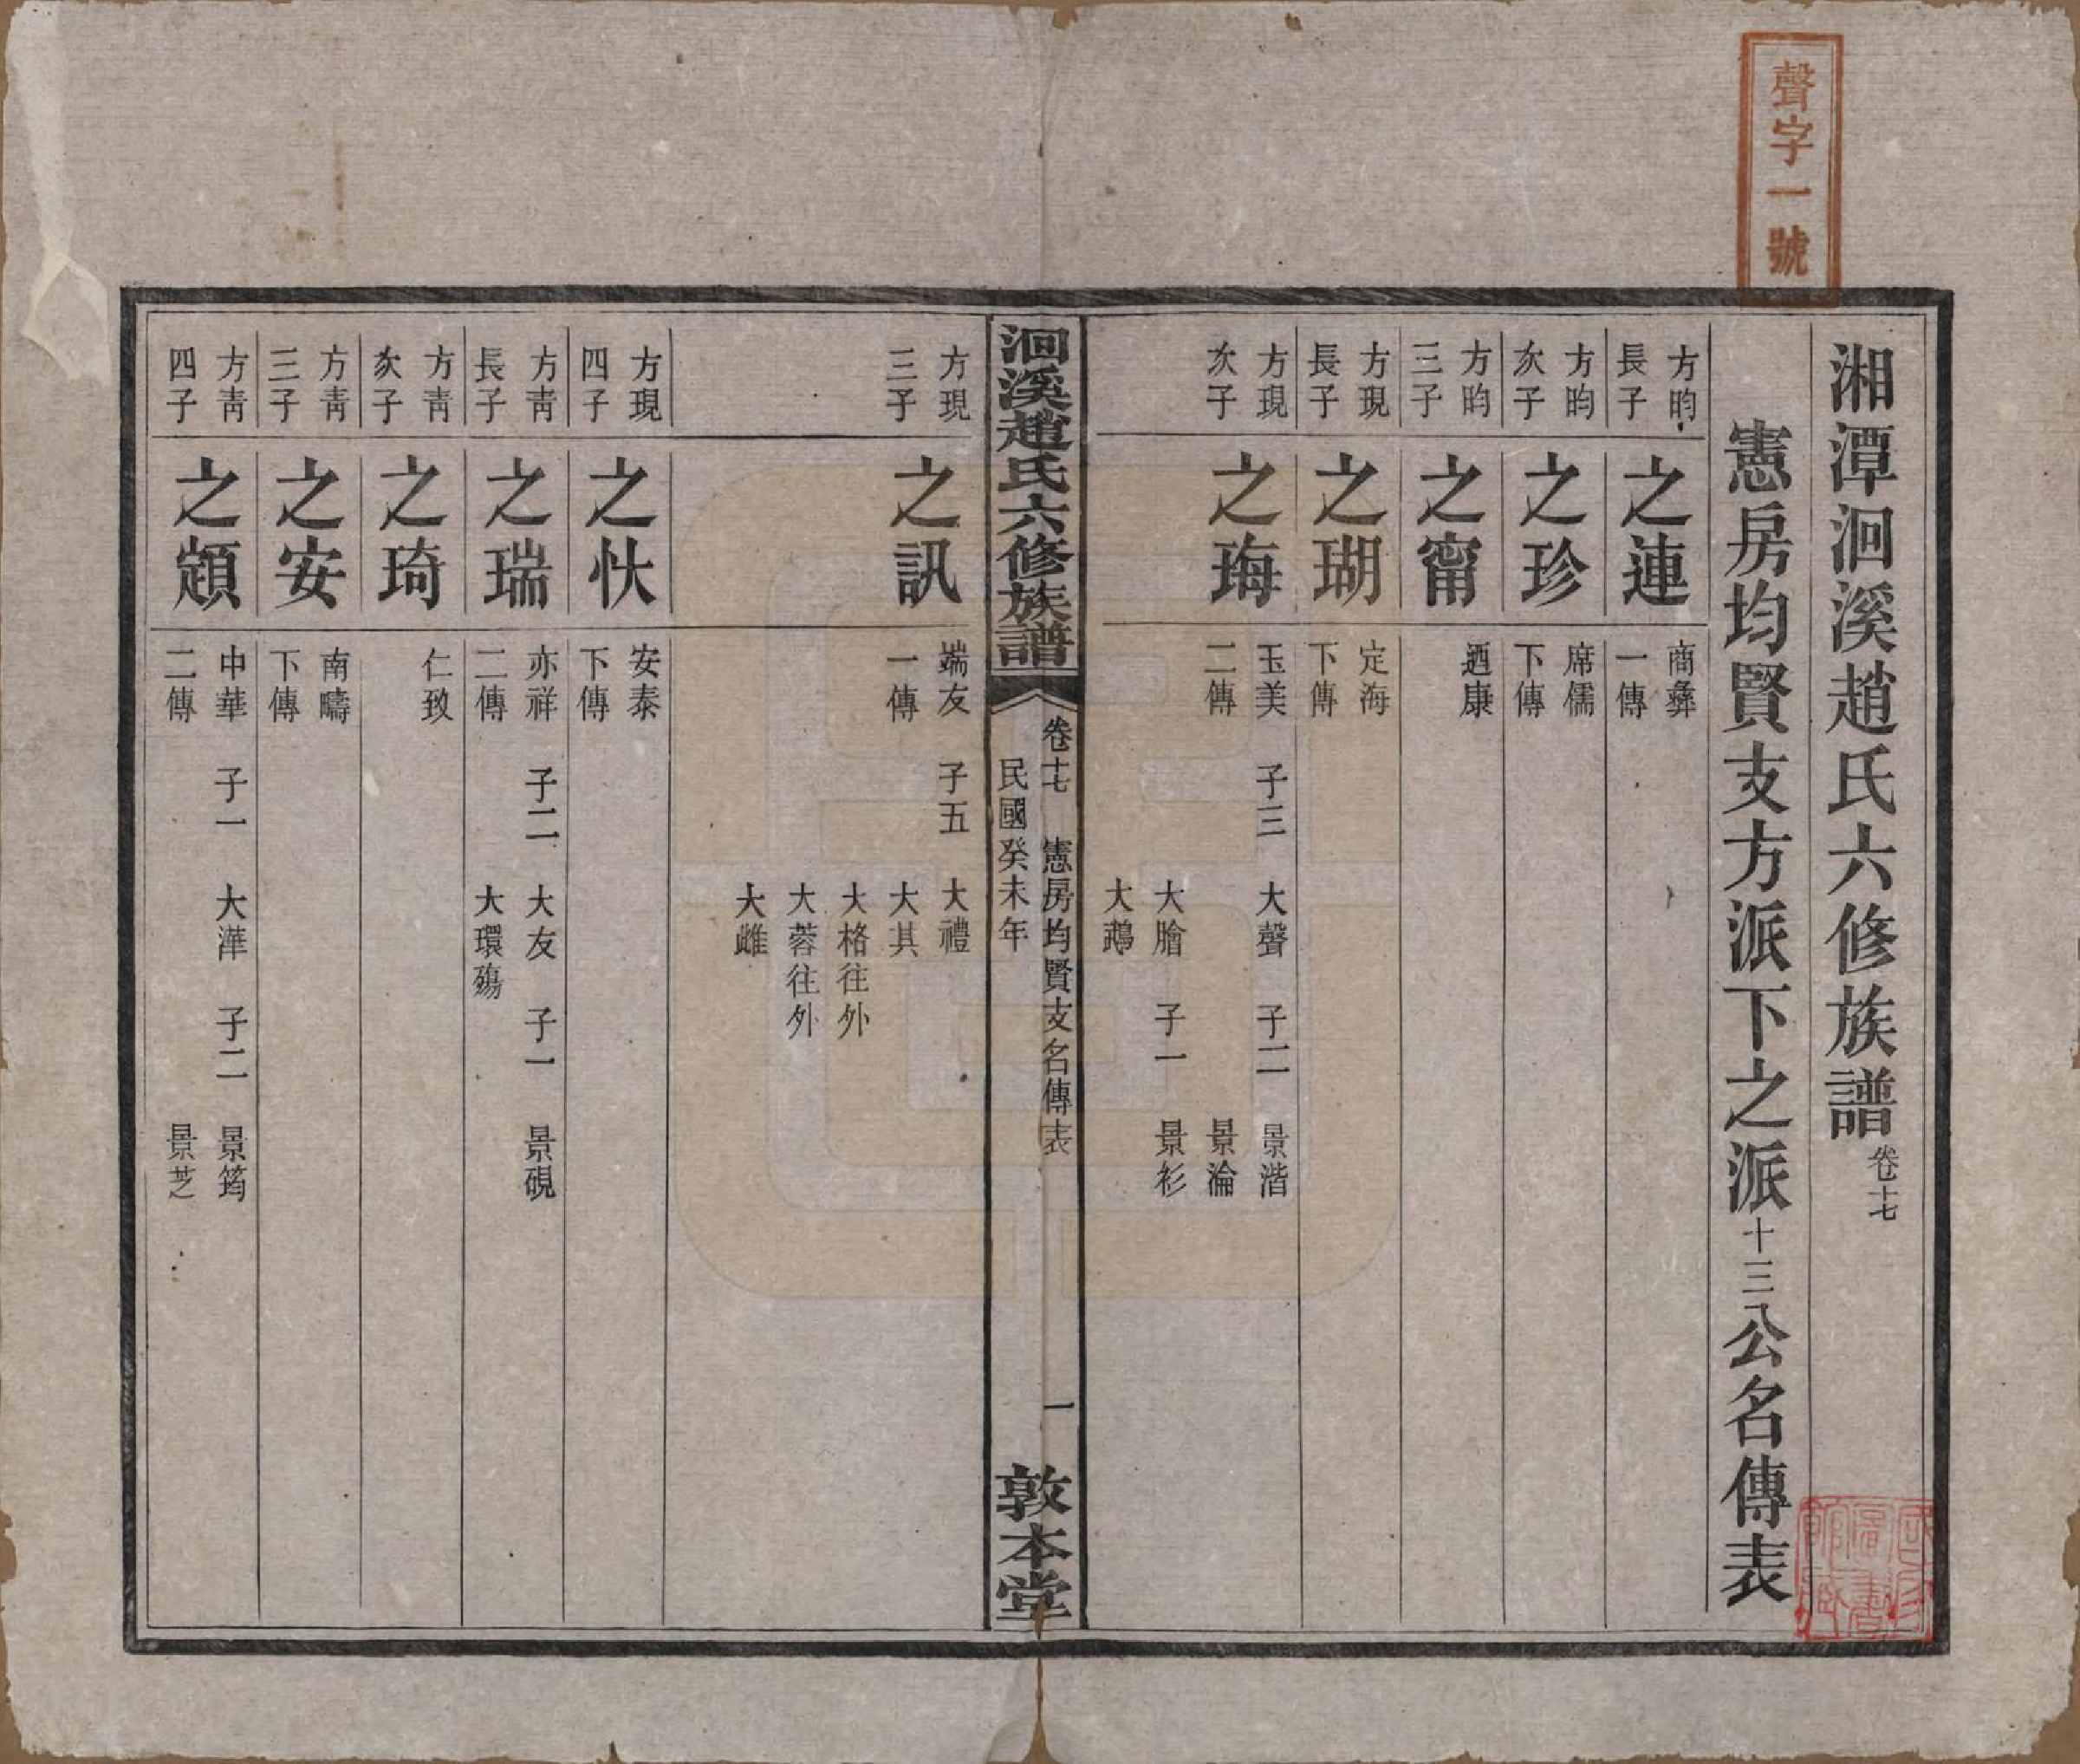 聲字一號
湘潭洄溪趙氏六修族譜卷十七
憲房均賢支方派下之派十三公名傳表
方昀長子 之連 商彝一傳
方昀次子 之珍 席儒下傳
方昀三子 之甯 迺康
方現長子 之瑚 定海下傳
方現次子 之珻 玉美二傳 子三 大聲 子二 景湝
景淪
大膾 子一 景衫
大鵡
洄溪趙氏六修族譜 卷十七 憲房均賢支名傳表 一
民國癸未年
敦本堂
方現三子 之訊 端友一傳 子五 大禮
大其
大格往外
大蓉往外
大雌
方現四子 之忕 安泰下傳
方靑長子 之瑞 亦祥二傳 子二 大友 子一 景硯
大環殤
方靑次子 之琦 仁致
方靑三子 之安 南疇下傳
方靑四子 之顚 中華二傳 子一 大澕 子二 景筠
景芝
國家圖書館藏